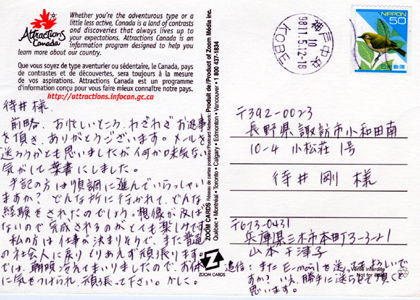 Attractions
Canada
Whether you're the adventurous type or a
little less active, Canada is a land of contrasts
and discoveries that always lives up to
your expectations. Attractions Canada is an
information program designed to help you
learn more about our country.
Que vous soyez de type aventurier ou sédentaire, le Canada, pays
de contrastes et de découvertes, sera toujours à la mesure
de vos aspirations. Attractions Canada est un programme
d'information conçu pour vous faire mieux connaître notre pays.
http://attractions.infocan.gc.ca
待井様
前略、お忙しいところ、わざわざお返事
を頂き、ありがとうございます。メールを
送ろうかとも思いましたが何か味気ない
気がして葉書にしました。
手記の方は順調に進んでいらっしゃい
ますか?どんな所に行かれて、どんな
経験をされたのでしょう。想像が及び
ないので完成されるのがとても楽しみです。
私の方は仕事が決まりそうで、また普通
の社会人に戻りとりあえず頑張ります。
では、朝晩冷えまいりましたので、お体
に気をつけられ、頑張って下さい。かしこ。
Produit de / Product of Zoom Média Inc.
• 1 800 437-1834
Québec • Montréal • Toronto • Calgary • Edmonton • Vancouver •
ZOOM CARDS
Z
ZOOM CARDS
神戸中央
98.11.10
12-18
KOBE
NIPPON
50
日本郵便
〒392-0023
長野県諏訪市小和田南
10-4 小松荘1号
待井 剛 様
〒673-0431
兵庫県三木市本町3-3-21
山本千津子
追信:またE-mailを送ってもよろしいで
すか? いえ、勝手に送らせて頂くと
思います。